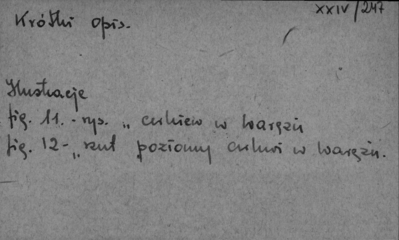 XXIV/247
Krótki opis.
Ilustracje
fig. 11. - rys. „ cerkiew w Warężu
fig. 12 - „rzut poziomy cerkwi w Warężu.